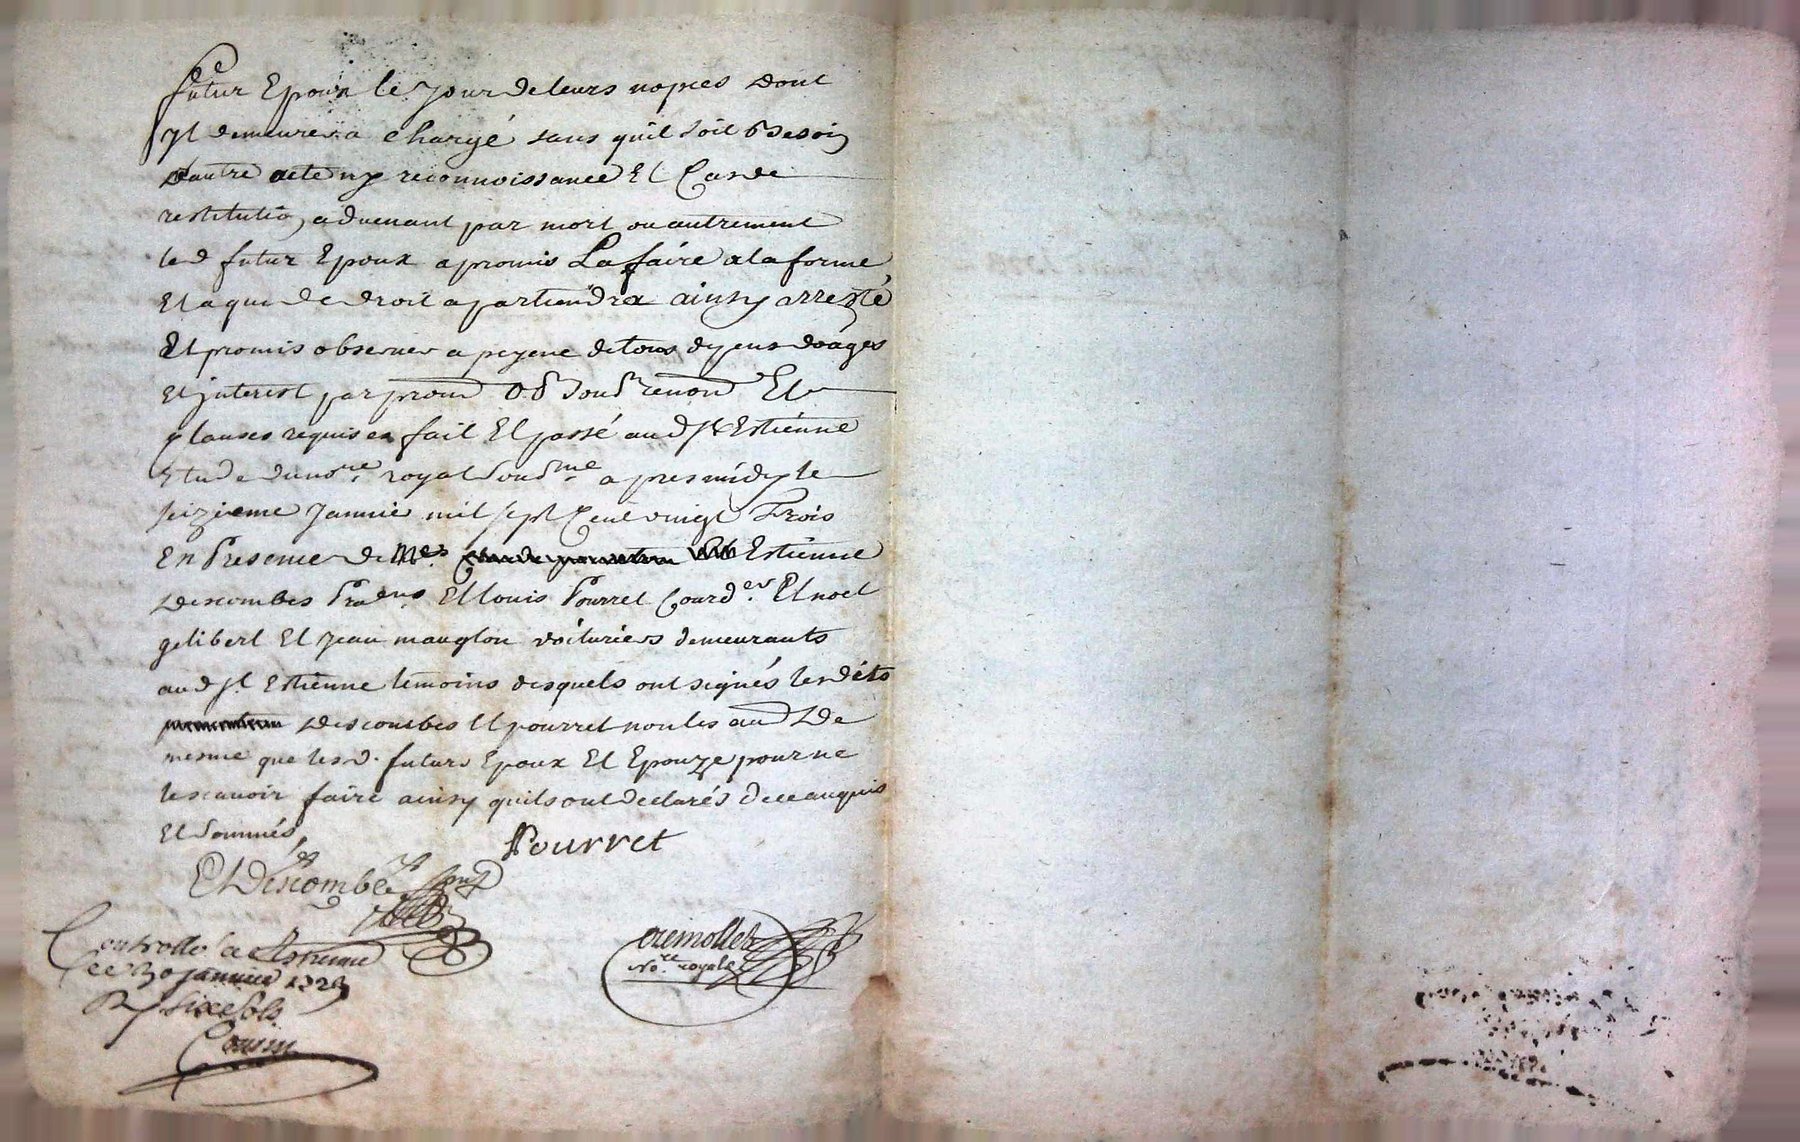 futur Epoux le jour de leurs nopces dont
yl demeurera chargé sans quil soit besoin
dautre acte ny reconnoissance Et Cas de
restitution aduenant par mort ou autrement
led futur Epoux a promis La faire a la forme
Et a qui de droit apartiendra ainsy arresté
Et promis obseruer a peyne de tous depens domages
Et interest par prom ob soub renon Et
clauses requises fait Et passé aud st Estienne
Etude du no.re royal soub.ne apres midy le
seizieme Januier mil sept Cent vingt Trois
En Presence de Me.s Estienne
Descombes Pra.ens Et Louis Pourret Cour.d.er Et noel
gelibert Et Jean mauglon voituriers demeurants
aud st Estienne temoins desquels ont signés lesdits
Descombes Et pourret non les au.d de
mesme que lesd. futurs Epoux Et Epouze pour ne
le scauoir faire ainsy quils ont declarés de ce enquis
Et sommés
Pourret
E Descombes
Controllé a St Estienne
le 30 januier 1723
R six sols
Cousin
No.re royal